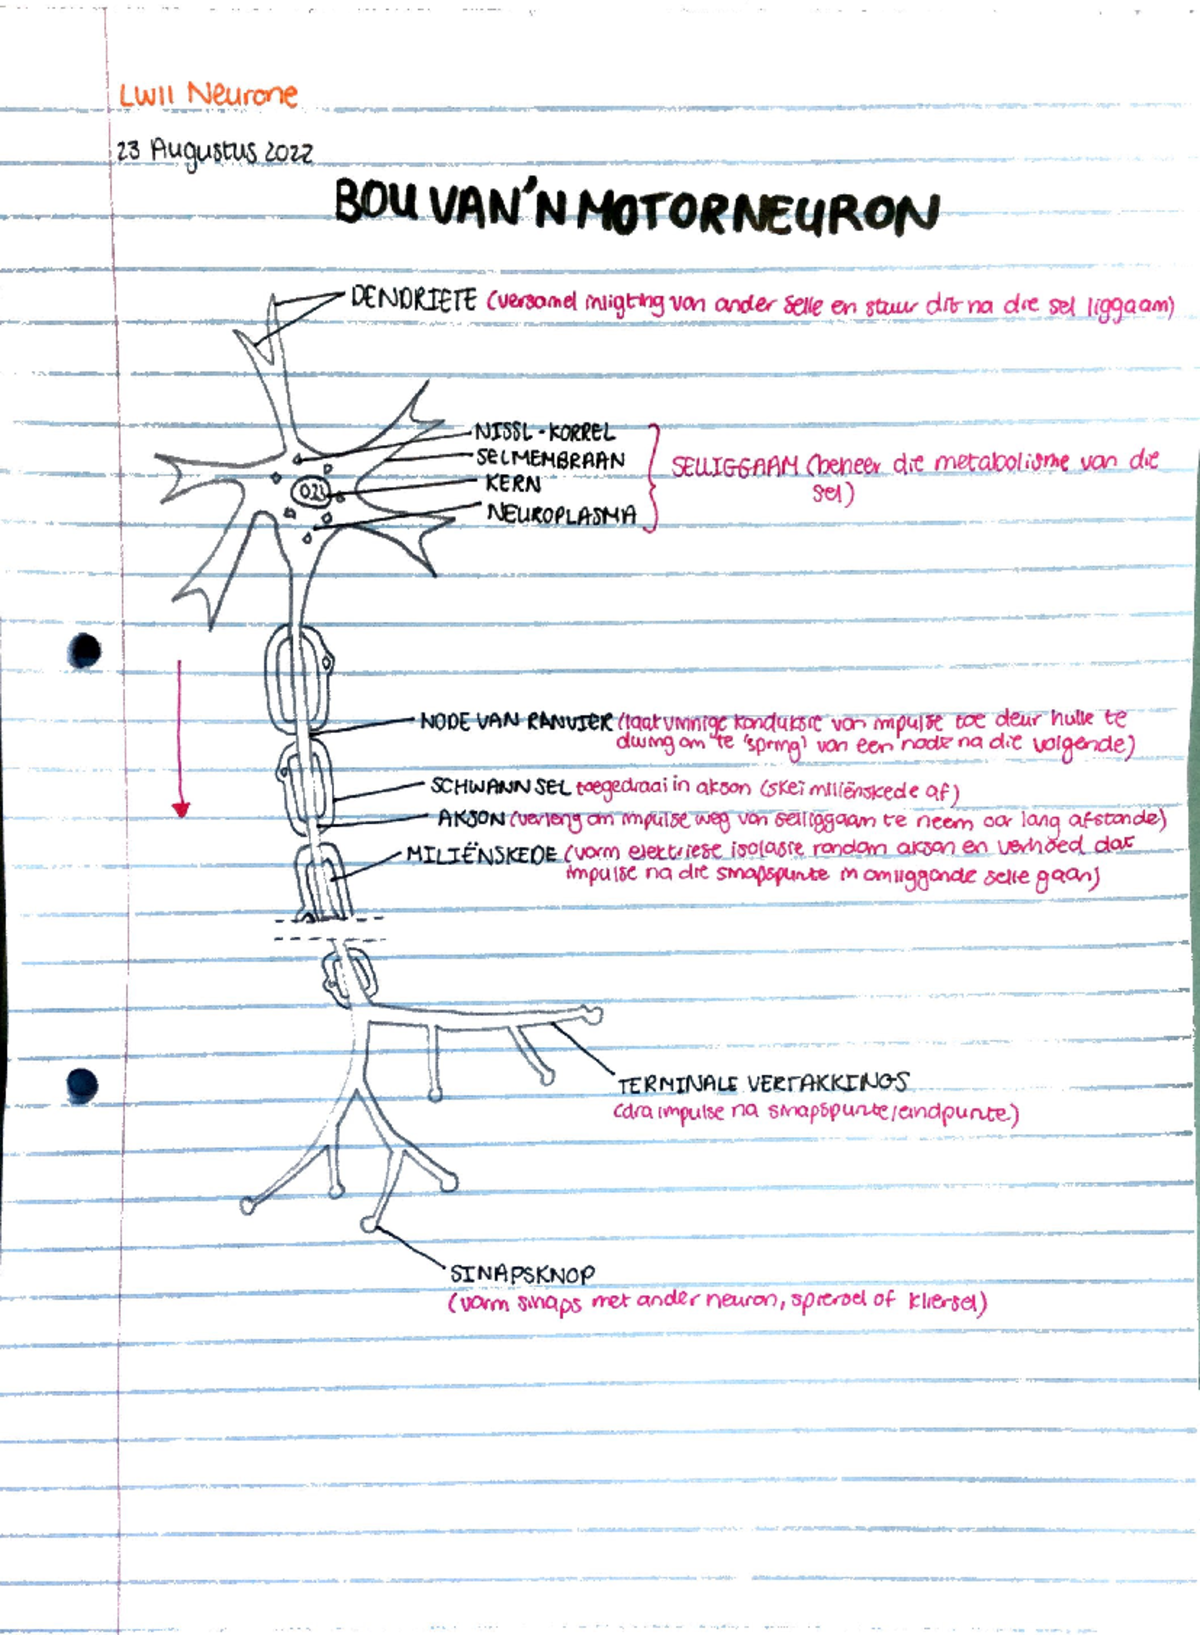 LW11 Neurone
23 Augustus 2022
BOU VAN 'N MOTORNEURON
DENDRIETE (versamel inligting van ander selle en stuur dit na die sel liggaam)
NISSL-KORREL
SELMEMBRAAN
KERN
NEUROPLASMA
SELLIGGAAM (beheer die metabolisme van die
sel)
NODE VAN RANVIER (laat vinnige konduksie van impulse toe deur hulle te
dwing om te 'spring' van een node na die volgende)
SCHWANN SEL toegedraai in akson (skei miliënskede af)
AKSON (verleng om impulse weg van selliggaam te neem oor lang afstande)
MILIËNSKEDE (vorm elektriese isolasie rondom akson en verhoed dat
impulse na die sinapspunte in omliggende selle gaan)
TERMINALE VERTAKKINGS
(dra impulse na sinapspunte/eindpunte)
SINAPSKNOP
(vorm sinaps met ander neuron, spiersel of kliersel)